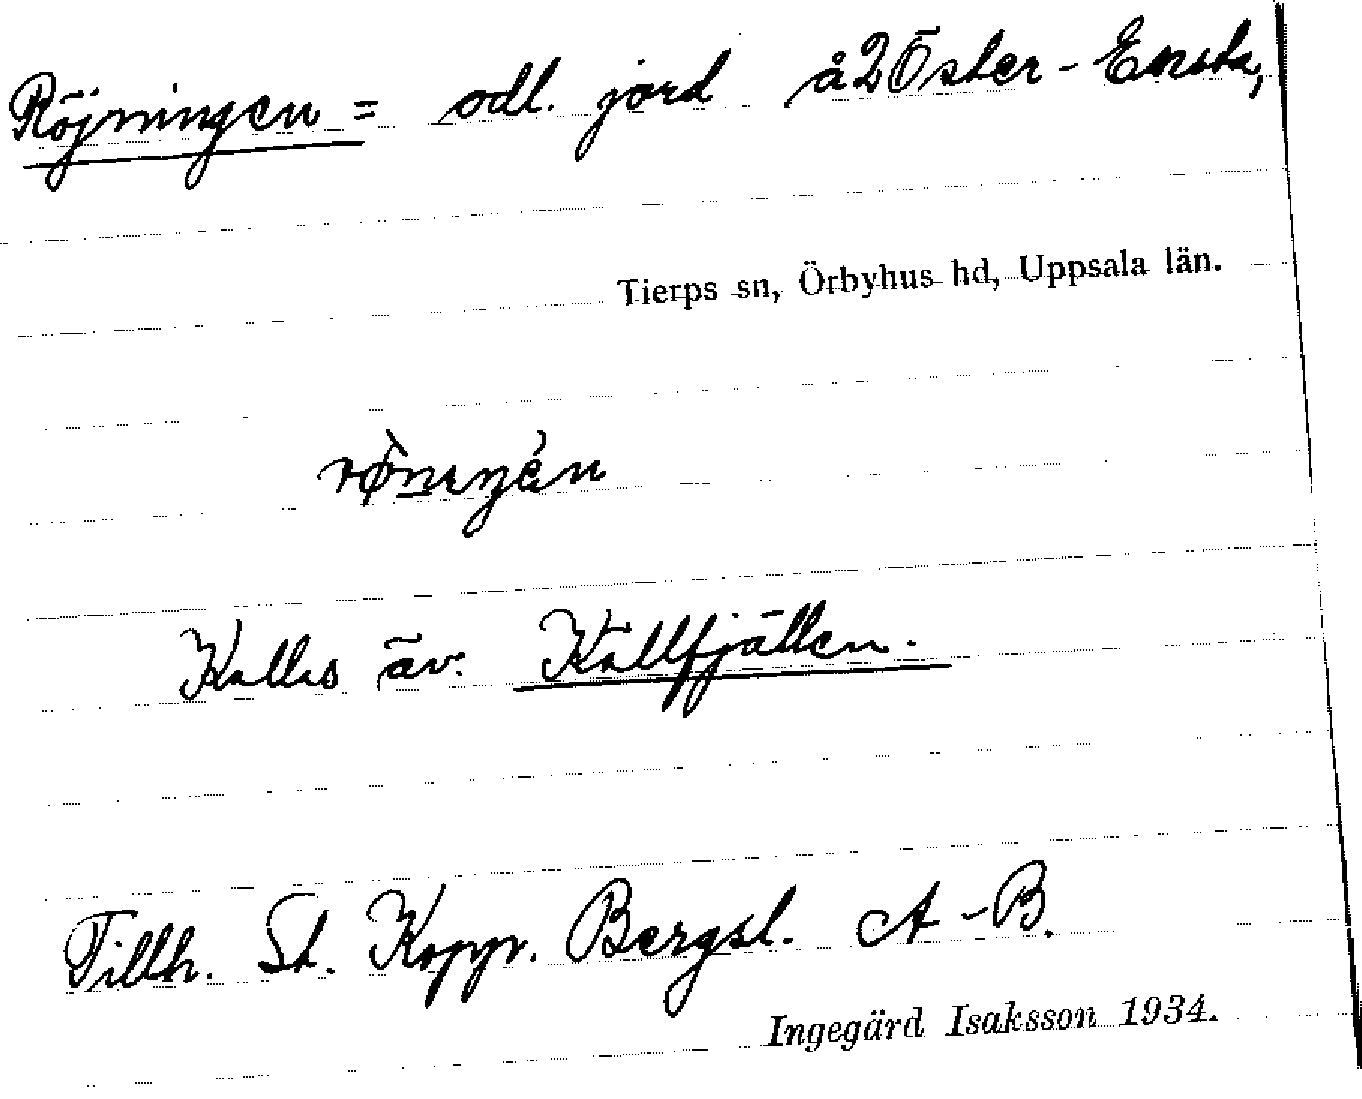 Röjningen = odl. jord å 2 Öster-Ensta,
Tierps sn, Örbyhus hd, Uppsala län.
Kallas äv. Källfjällen.
Tillh. St. Kopp. Bergsl. A-B.
Ingegärd Isaksson 1934.